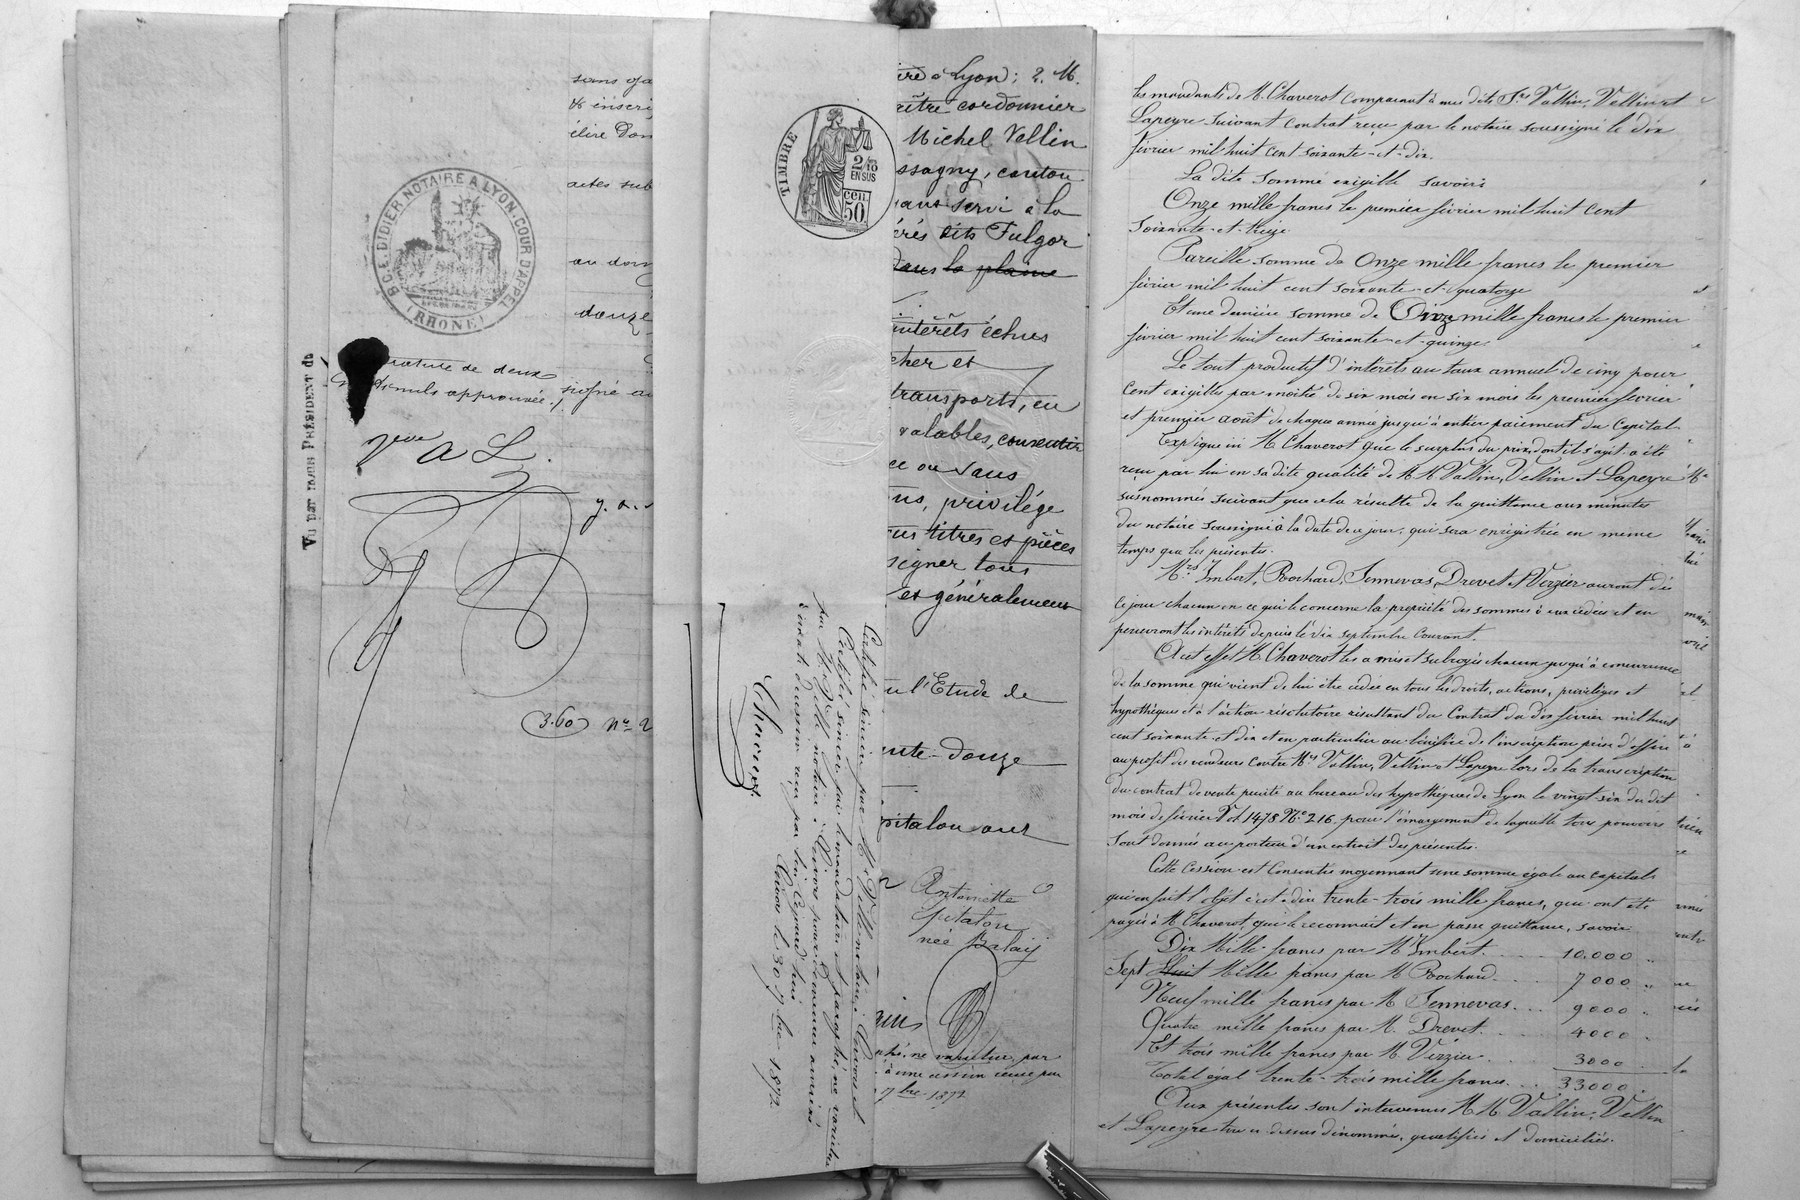 sans
& inscri
élire Dom
actes sub
au dom
douze
B.C.E. DIDIER NOTAIRE A LYON. COUR D'APPEL
(RHONE)
VU PAR NOUS PRÉSIDENT du
rature de deux
mots nuls approuvée
signé
A L.
3.60 No 2
TIMBRE
2/10
EN SUS
CEN.
50
Certifié sincère par Me Vellé notaire à
Certifié sincère par le mandataire et paraphé, ne varietur
par Me Vellé notaire à
reçu par lui
Givors le 30 7bre 1872
Chaverot
ire à Lyon: 2. M.
aître cordonnier
Michel Vellin
ssagny, canton
ant servi à la
érés dits Fulgor
dans la plaine
intérêts échus
cher et
transports, en
valables, consentir
ce ou sans
ns, privilége
us titres et pièces
signer tous
et généralement
en l'Etude de
ante-douze
pitalon ont
Antoinette
Epitalon
née Balay
phé, ne varietur, par
à une cession reçue par
7bre 1872
les mandants de M. Chaverot Comparant à mes dits Srs Vallin, Vellin et
Lapeyre suivant contrat reçu par le notaire soussigné le dix
février mil huit cent soixante-et-dix.
La dite Somme exigible savoir:
Onze mille francs le premier février mil huit cent
soixante-et-treize
Pareille somme de Onze mille francs le premier
février mil huit cent soixante-et-quatorze
Et une dernière somme de Onze mille francs le premier
février mil huit cent soixante-et-quinze
Le tout productif d'intérêts au taux annuel de cinq pour
cent exigibles par moitié de six mois en six mois les premier février
et premier août de chaque année jusqu'à entier paiement du Capital
Explique ici M. Chaverot que le surplus du prix dont il s'agit a été
reçu par lui en sa dite qualité de M.M. Vallin, Vellin et Lapeyre
susnommés suivant que cela résulte de la quittance aux minutes
du notaire soussigné à la date de ce jour qui sera enregistrée en même
temps que les présentes.
Mrs Imbert, Rochard, Jennevas, Drevet et Virzier auront dès
ce jour chacun en ce qui le concerne la propriété des sommes à eux cédées et en
percevront les intérêts depuis le dix septembre Courant.
A cet effet M. Chaverot les a mis et subrogés chacun jusqu'à concurrence
de la somme qui vient de lui être cédée en tous les droits, actions, privilèges et
hypothèques et à l'action résolutoire résultant du Contrat du dix février mil huit
cent soixante-et-dix et en particulier au bénéfice de l'inscription prise d'office
au profit des vendeurs contre Mrs Vallin, Vellin et Lapeyre lors de la transcription
du contrat de vente précité au bureau des hypothèques de Lyon le vingt six du dit
mois de février Vol 1478 No 216, pour l'émargement de laquelle tous pouvoirs
sont donnés au porteur d'un extrait des présentes.
Cette Cession est Consentie moyennant une somme égale au capital
qui en fait l'objet c'est-à-dire trente-trois mille francs, qui ont été
payés à M. Chaverot, qui le reconnait et en passe quittance, savoir:
Dix Mille francs par M. Imbert. . . . 10.000 "
Sept Huit Mille francs par M. Rochard . . . 7000 "
Neuf mille francs par M. Jennevas . . . 9000 "
Quatre mille francs par M. Drevet . . . 4000 "
Et trois mille francs par M. Virzier . . . 3000 "
Total égal trente-trois mille francs . . . 33000 "
Aux présentes sont intervenus M.M. Vallin, Vellin
et Lapeyre tous ci-dessus dénommés, qualifiés et domiciliés.